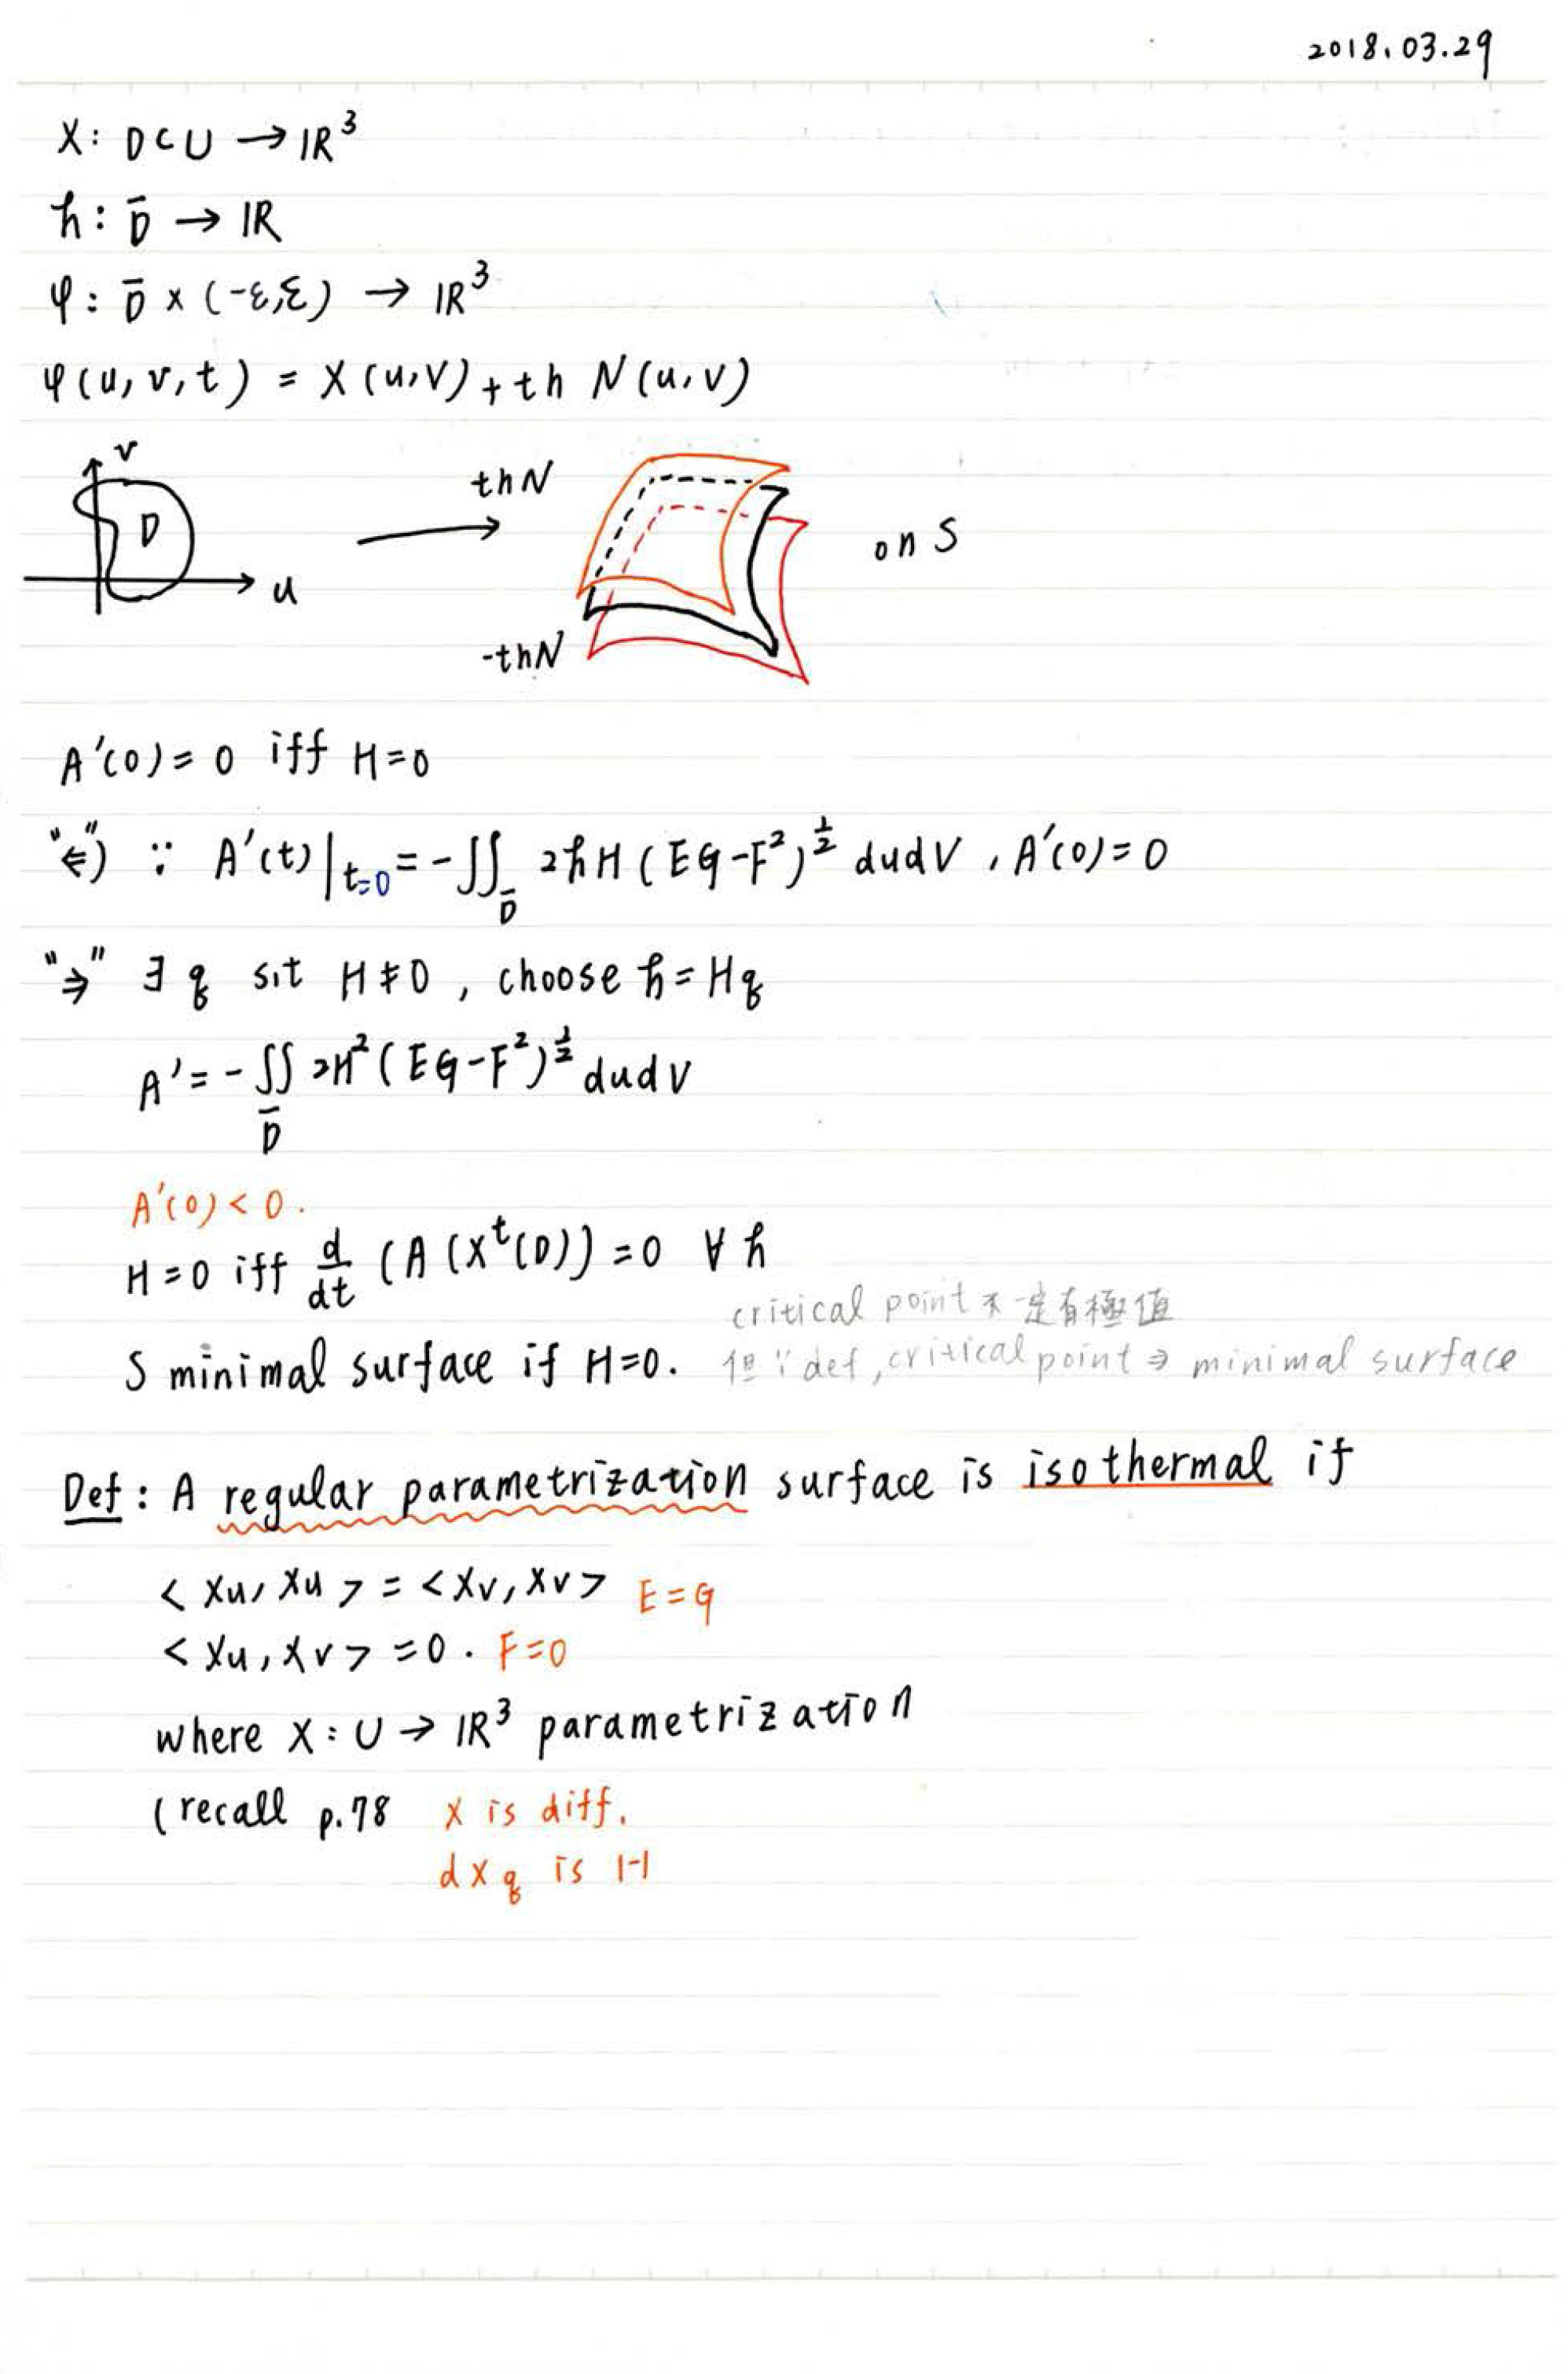 2018.03.29
X: D⊂U → ℝ³
h: D̄ → ℝ
φ: D̄ × (-ε,ε) → ℝ³
φ(u,v,t) = X(u,v) + th N(u,v)
v
thN
D
on S
u
-thN
A'(0)=0 iff H=0
"⇐") ∵ A'(t)|t=0 = -∬D̄ 2hH(EG-F²)^½ dudv, A'(0)=0
"⇒" ∃ q s.t H≠0, choose h=Hq
A' = -∬D̄ 2H²(EG-F²)^½ dudv
A'(0)<0.
H=0 iff d/dt (A(X^t(D))=0 ∀h
critical point 不一定有極值
S minimal surface if H=0. 但∵def, critical point ⇒ minimal surface
Def: A regular parametrization surface is isothermal if
<Xu, Xu> = <Xv, Xv> E=G
<Xu, Xv> =0. F=0
where X: U → ℝ³ parametrization
(recall p.78 X is diff.
dXq is 1-1